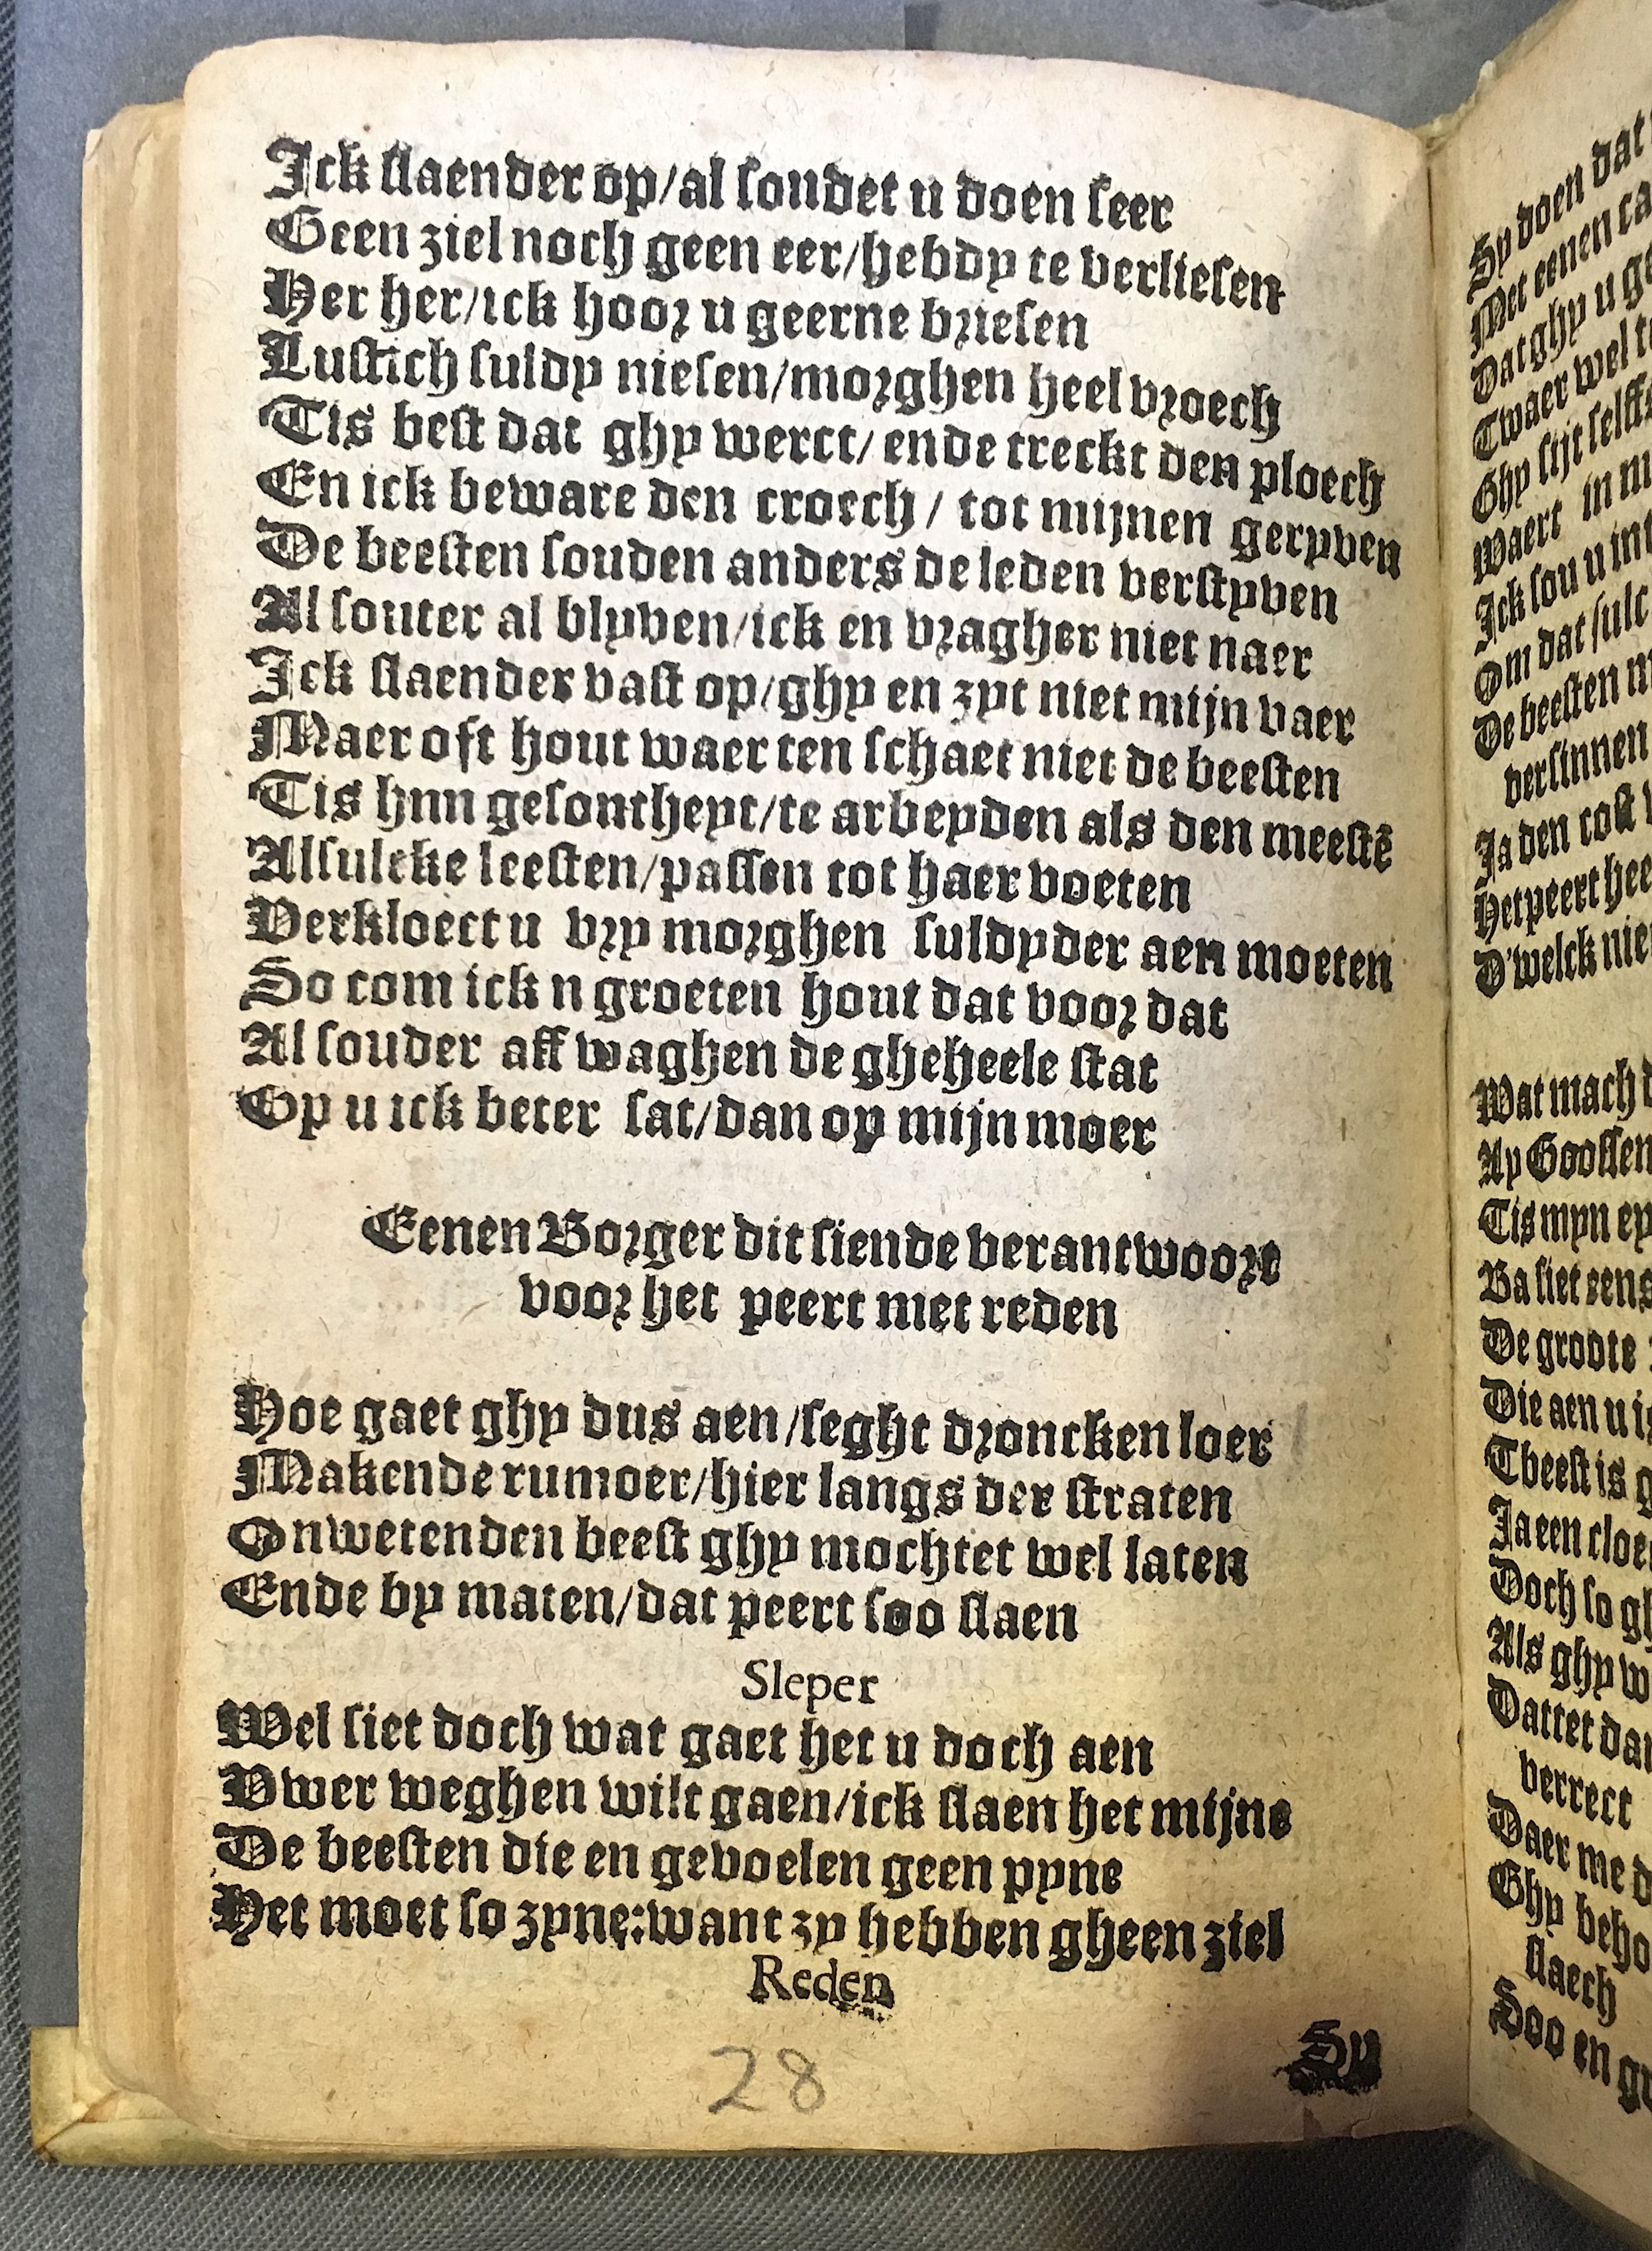 Ick slaender op/al soudet u doen seer
Geen ziel noch geen eer/hebdy te verliesen
Her her/ick hoor u geerne briesen
Lustich suldy niesen/morghen heel vroech
Tis best dat ghy werct/ende treckt den ploech
En ick beware den croech/tot mijnen geryven
De beesten souden anders de leden verstyven
Al souter al blyven/ick en vragher niet naer
Ick slaender vast op/ghy en zyt niet mijn vaer
Maer oft hout waer ten schaet niet de beesten
Tis hnn gesontheyt/te arbeyden als den meestē
Alsulcke leesten/passen tot haer voeten
Verkloect u vry morghen suldyder aen moeten
So com ick n groeten hout dat voor dat
Al souder aff waghen de gheheele stat
Op u ick beter sat/dan op mijn moer
Eenen Borger dit siende verantwoort
voor het peert met reden
Hoe gaet ghy dus aen/seght droncken loer
Makende rumoer/hier langs der straten
Onwetenden beest ghy mochtet wel laten
Ende by maten/dat peert soo slaen
Sleper
Wel siet doch wat gaet het u doch aen
Vwer weghen wilt gaen/ick slaen het mijne
De beesten die en gevoelen geen pyne
Het moet so zyne:want zy hebben gheen ziel
Reden
Sy
28
Sy doen dat
Met eenen
Dat ghy u
Twaer wel
Ghy sijt
Waert in
Ick sou u
Om dat sulc
De beesten
versinnen
Ja den cost
Het peert
D'welck
Wat mach
Ay Goossen
Tis myn
Ba siet eens
De groote
Die aen u
Tbeest is
Ja een
Doch so
Als ghy
Dattet
verrect
Daer me
Ghy
slaech
Soo en